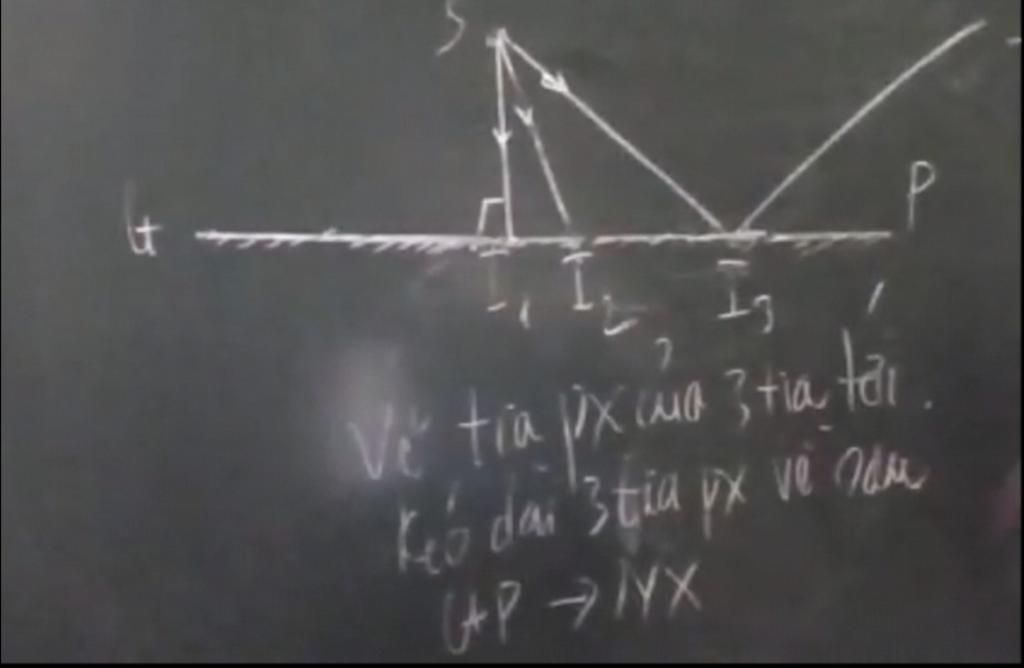 S
G P
I1 I2 I3
Vẽ tia px của 3 tia tới.
Kéo dài 3 tia px về sau
G+P → NX